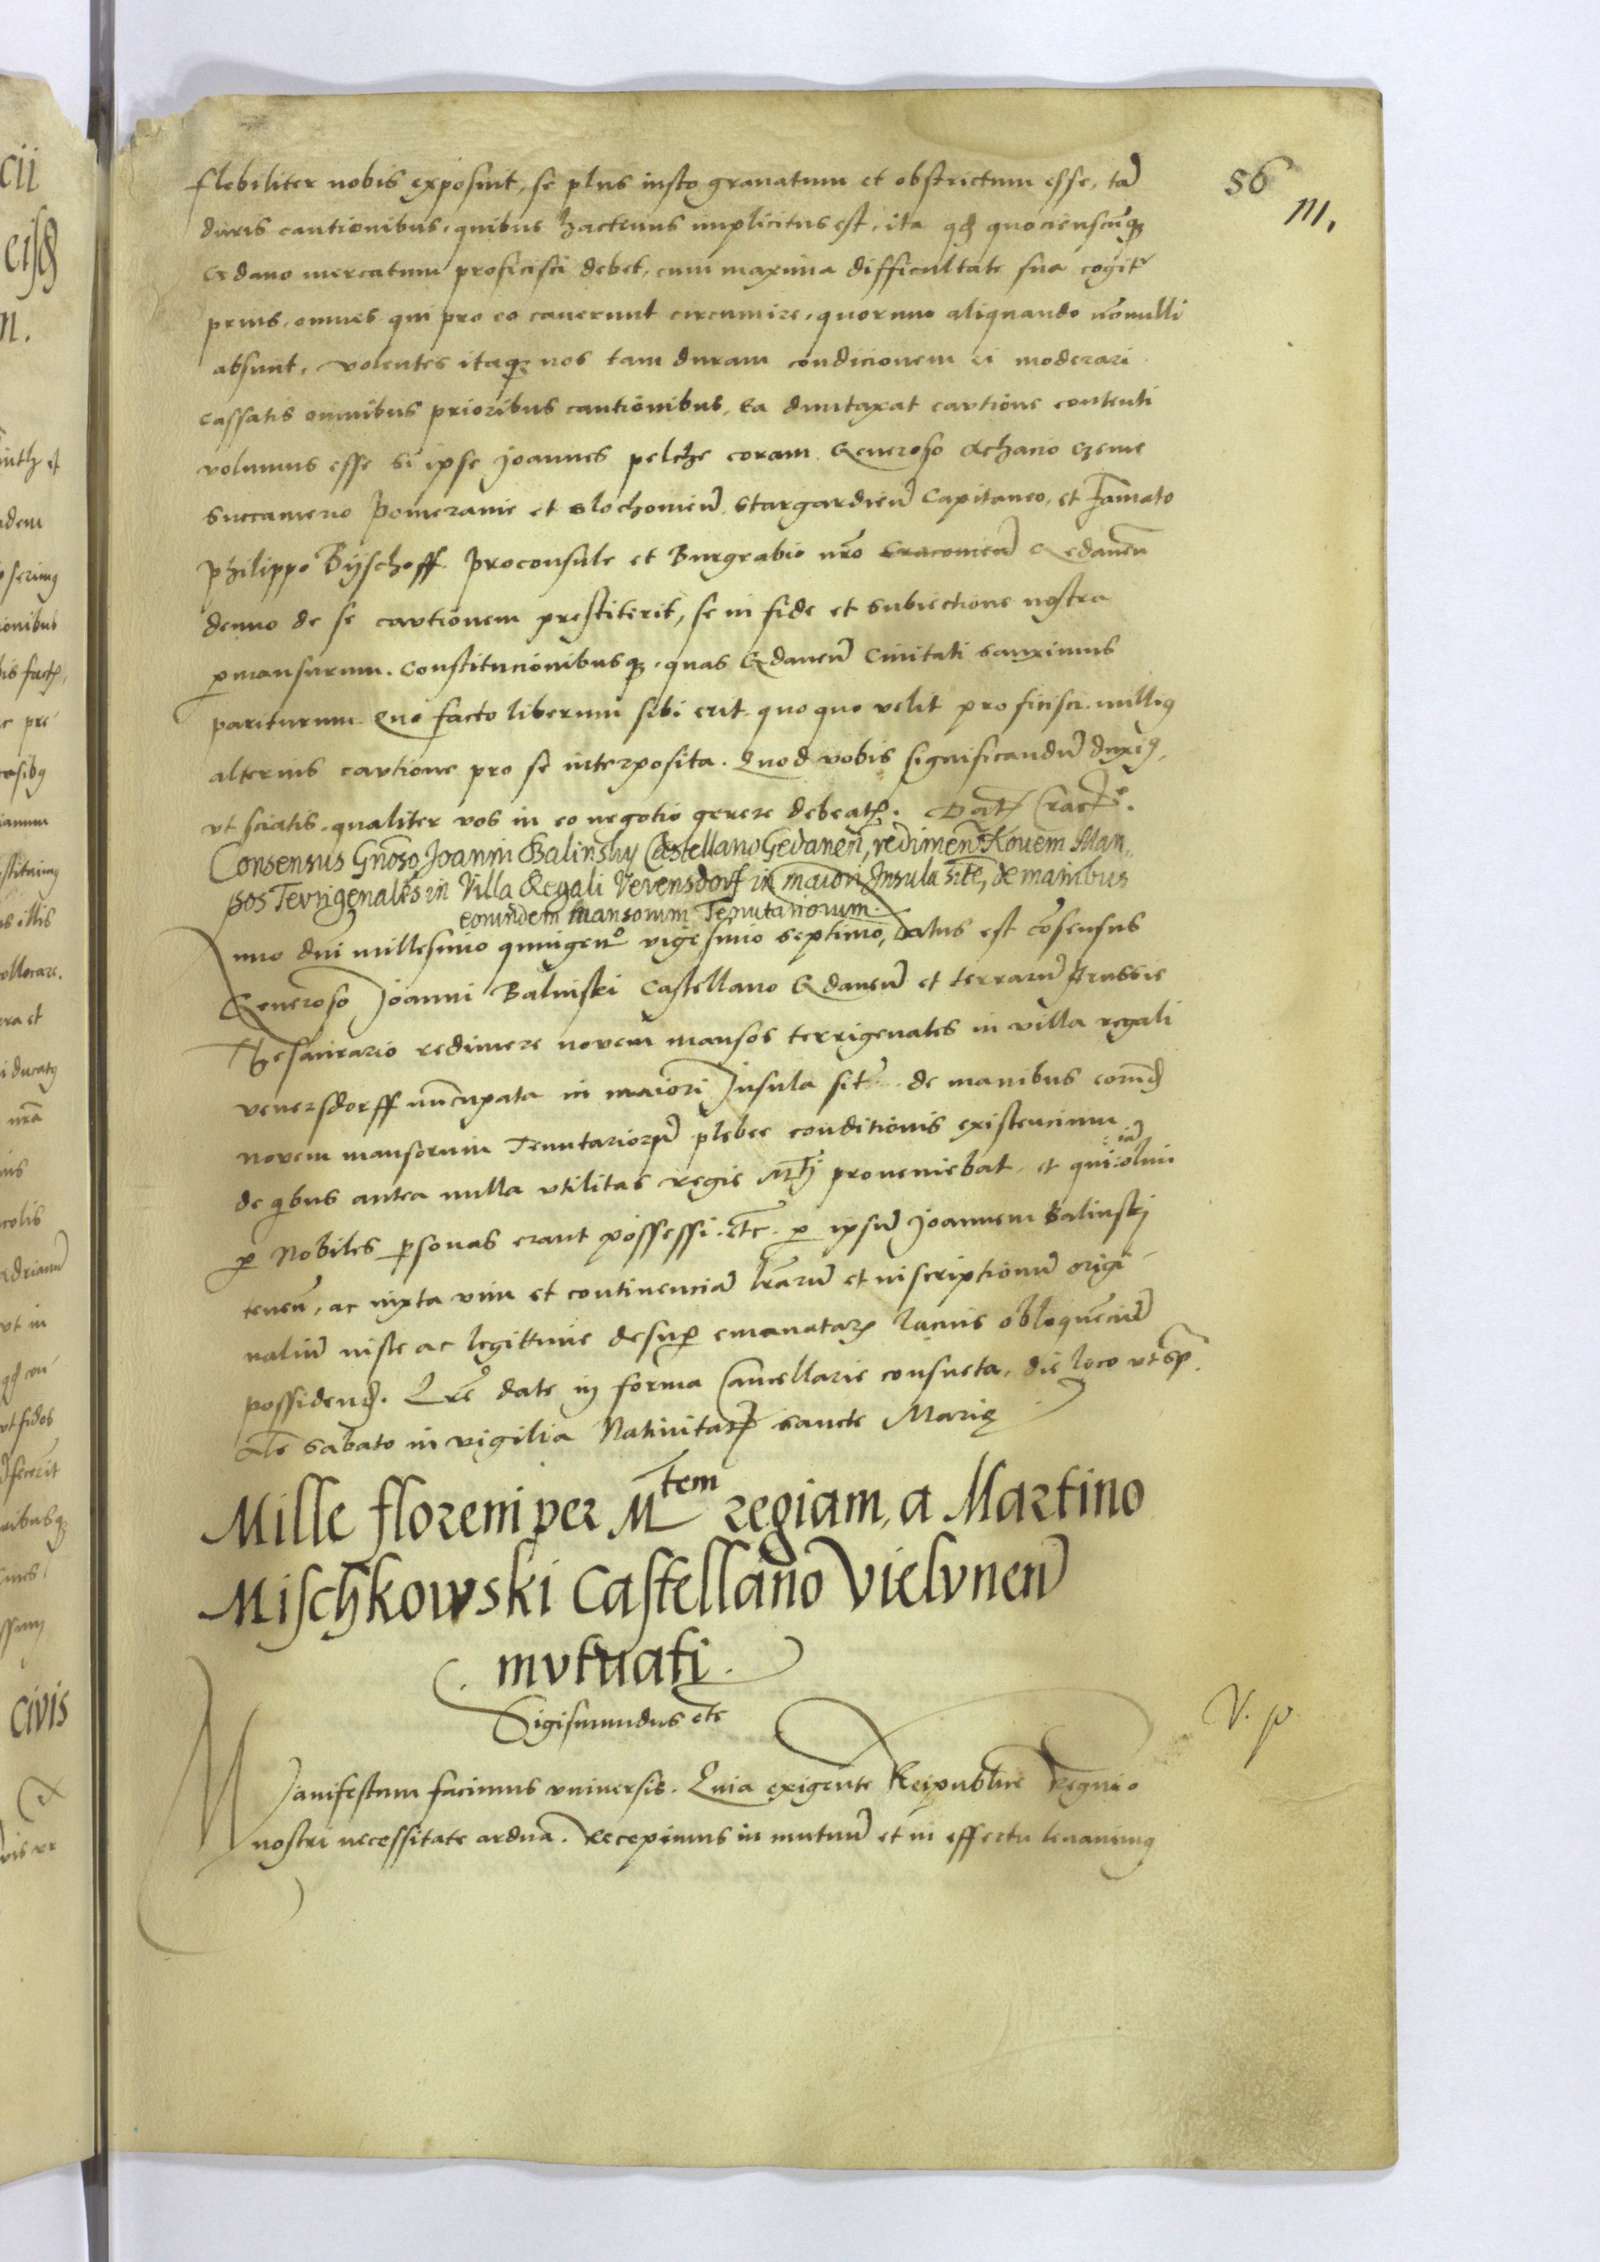 56
m.
flebiliter nobis exposuit, se plus iusto grauatum et obstrictum esse, tā
duris cautionibus, quibus hactenus implicitus est, ita qđ quocienscūqꝫ
Gedano mercatum proficisci debet, cum maxima difficultate sua cogitʳ
prius, omnes qui pro eo cauerunt circumire, quorum aliquando nōnulli
absunt, volentes itaqꝫ nos tam duram condicionem ei moderari
cassatis omnibus prioribus cautionibus, Ea duntaxat cautione contenti
volumus esse si ipse Joannes pelcze coram Generoso Achacio Czeme
succamerio Pomeranie et slochouień stargardień Capitaneo, et Famato
Philippo Byschoff Proconsule et Burgrabio nr̄o Cracouień Gedaneñ
denuo de se cautionem prestiterit, se in fide et subiectione nostra
ꝑmansurum. Constitucionibusqꝫ quas Gedaneñ Ciuitati sanximus
pariturum Quo facto liberum sibi erit quo quo velit proficisci nulliꝰ
alterius cautione pro se interposita. Quod vobis significandū duxiꝰ,
vt sciatis qualiter vos in eo negotio gerere debeatꝭ. Datꝭ Cracꝭ.
Consensus Gnōso Joanni Balinsky Castellano Gedaneñ, redimeñ Nouem Man„
sos Terrigenales in Villa Regali Verensdorf in maiori Insula sitē, de manibus
eorundem mansorum Tenutariorum
Anno dni millesimo quingenᵒ vigesimo septimo, Datus est cōsensus
Generoso Joanni Balinski Castellano Gedaneñ et terrarū Prussie
Thesaurario redimere novem mansos terrigenales in villa regali
venersdorff nūcupata in maiori Insula sitꝭ de manibus eorūđ
novem mansorum Tenutariorū plebee conditionis existencium
de qͥbus antea nulla vtilitas regie Mtͥ proueniebat, et qui iā olim
ꝑ Nobiles ꝑsonas erant possessi. etc. ꝑ ipsū Joannem Balinski
teneñ, ac iuxta vim et continenciā lr̄arū et inscriptionū origi-
naliū iuste ac legittime desuꝑ emanatarꝭ Iuniis obloquēciū
possidenđ. Lrē date in forma Cancellarie consueta, die loco vt sꝑ.
Alē sabato in vigilia Natiuitatꝭ sancte Marię
Mille floreni per Mtem regiam, a Martino
Mischkowski Castellano Vielvneñ
mvtuati.
Sigismundus etc
V. p
Manifestum facimus vniversis. Quia exigente Reipublice Regni
nostri necessitate ardua. Recepimus in mutuū et in effectu leuauimꝰ